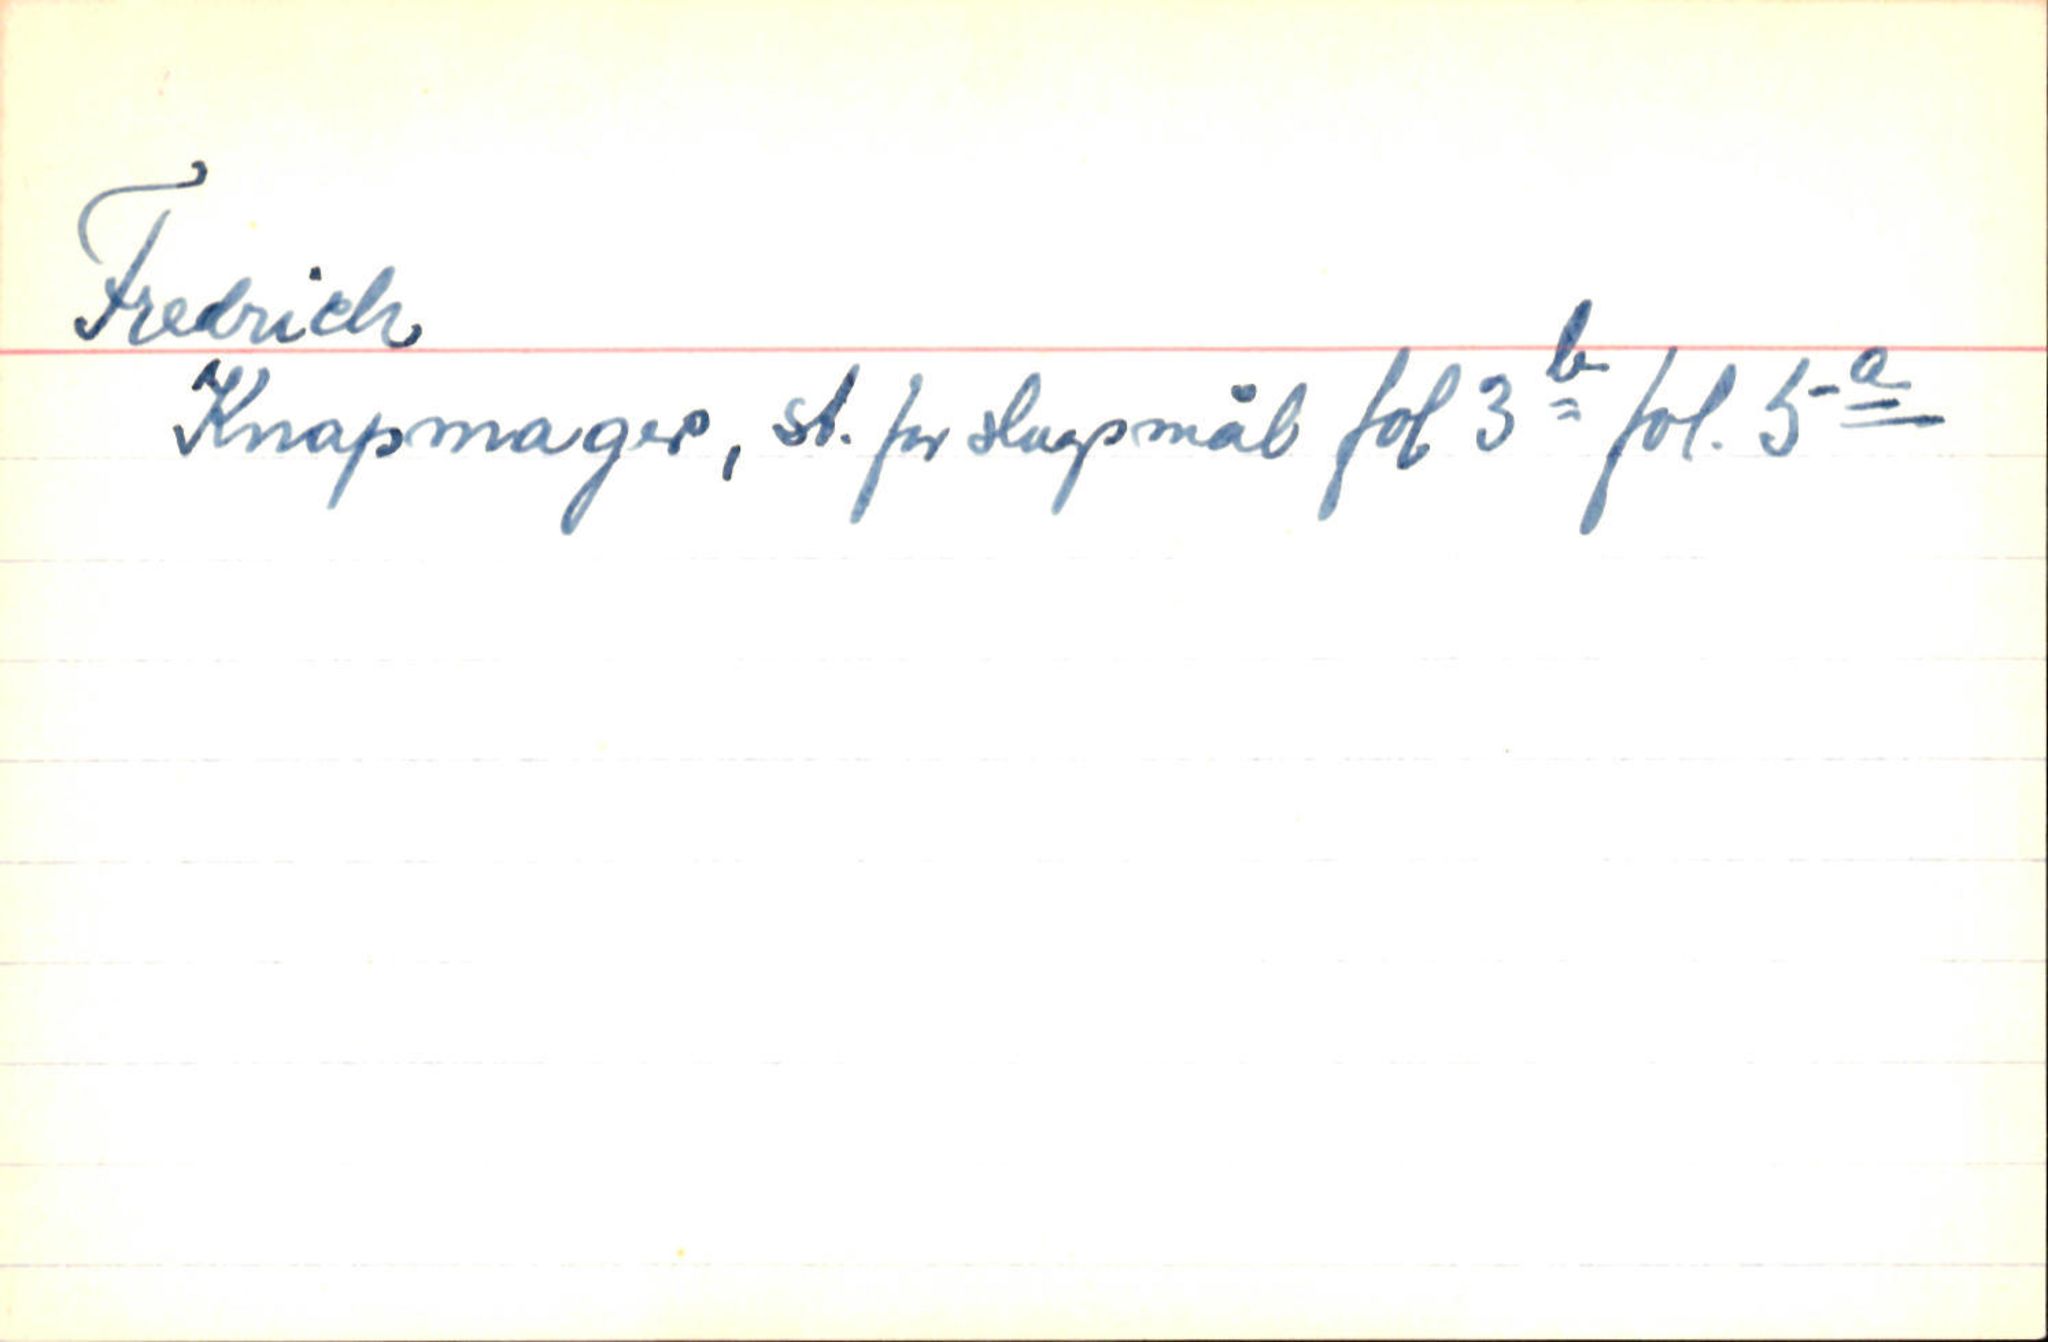 Fredrich
Knapmager, st. for slagsmål fol 3b fol. 5a